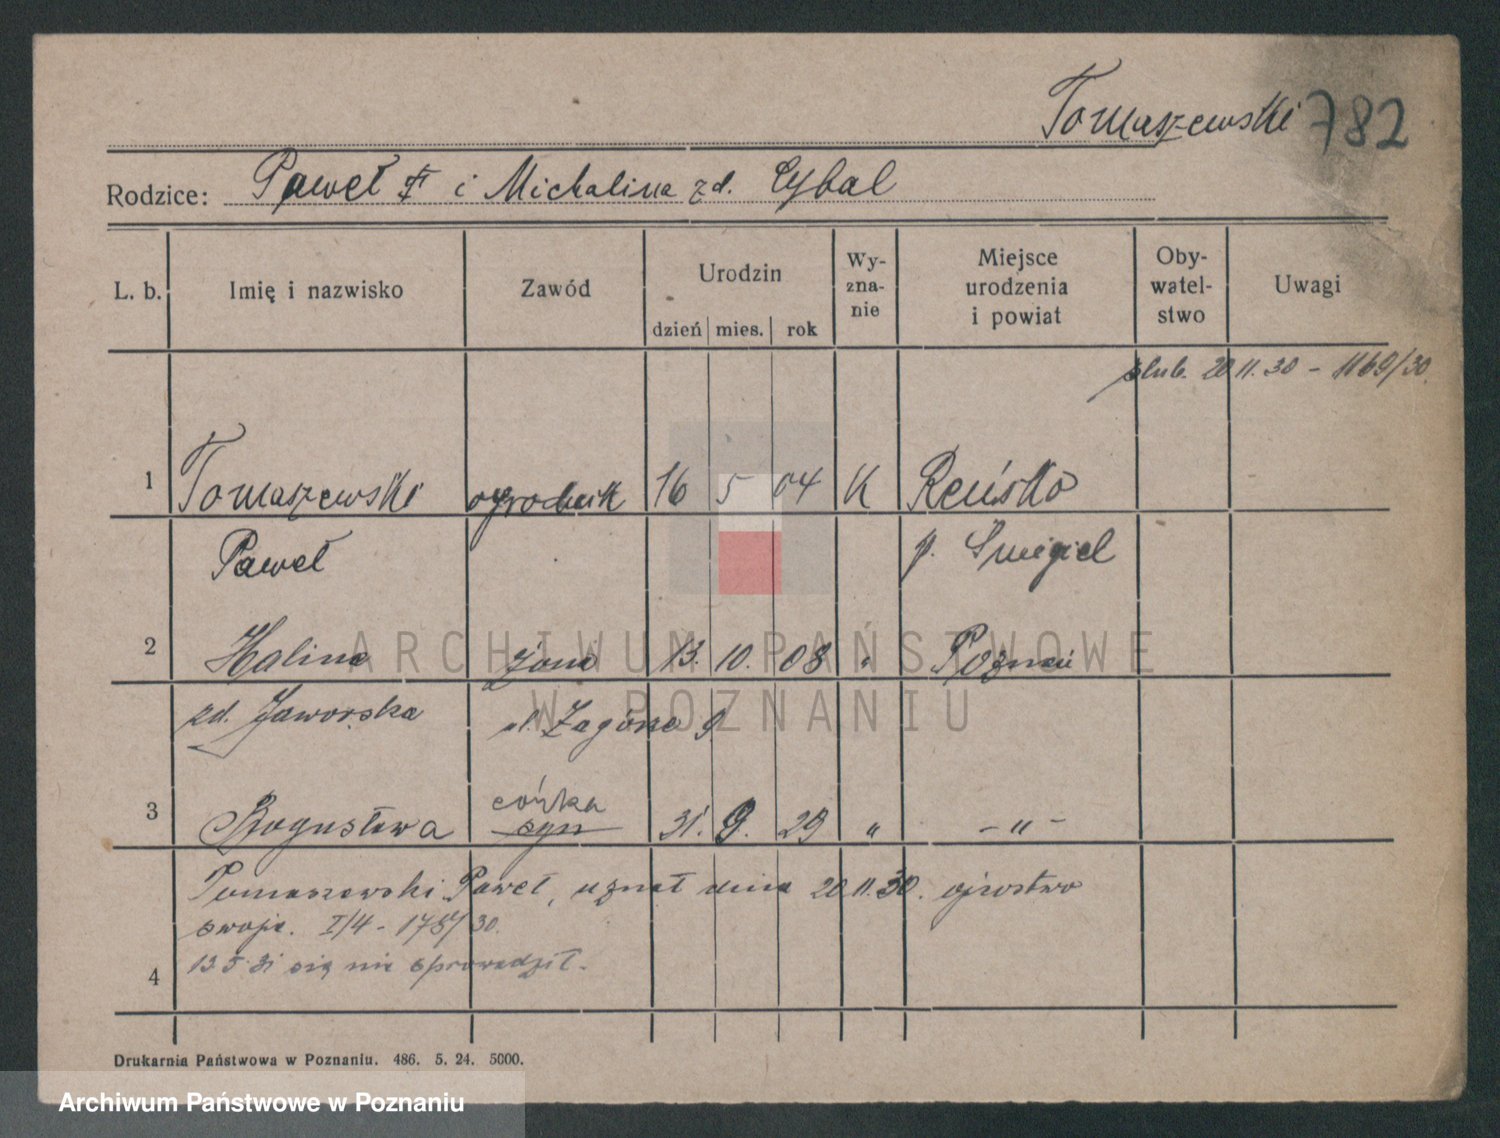 Tomaszewski 782
Rodzice: Paweł † i Michalina zd. Cybal
L. b. Imię i nazwisko Zawód Urodzin dzień mies. rok Wy-zna-nie Miejsce urodzenia i powiat Oby-watel-stwo Uwagi
ślub. 20 11. 30 - 1169/30.
1 Tomaszewski ogrodnik 16 5 04 K Reńsko
Paweł p. Śmigiel
2 Halina żona 13. 10. 08 " Poznań
zd. Jaworska ul. Zagórze 9
córka
3 Bogusława syn 31. 9. 29 " - " -
Tomaszewski Paweł, uznał dnia 20 11. 30. ojcostwo
swoje. I/4 - 30.
4 13 5 31 się nie sprowadził.
Drukarnia Państwowa w Poznaniu. 486. 5. 24. 5000.
ARCHIWUM PAŃSTWOWE
W POZNANIU
Archiwum Państwowe w Poznaniu